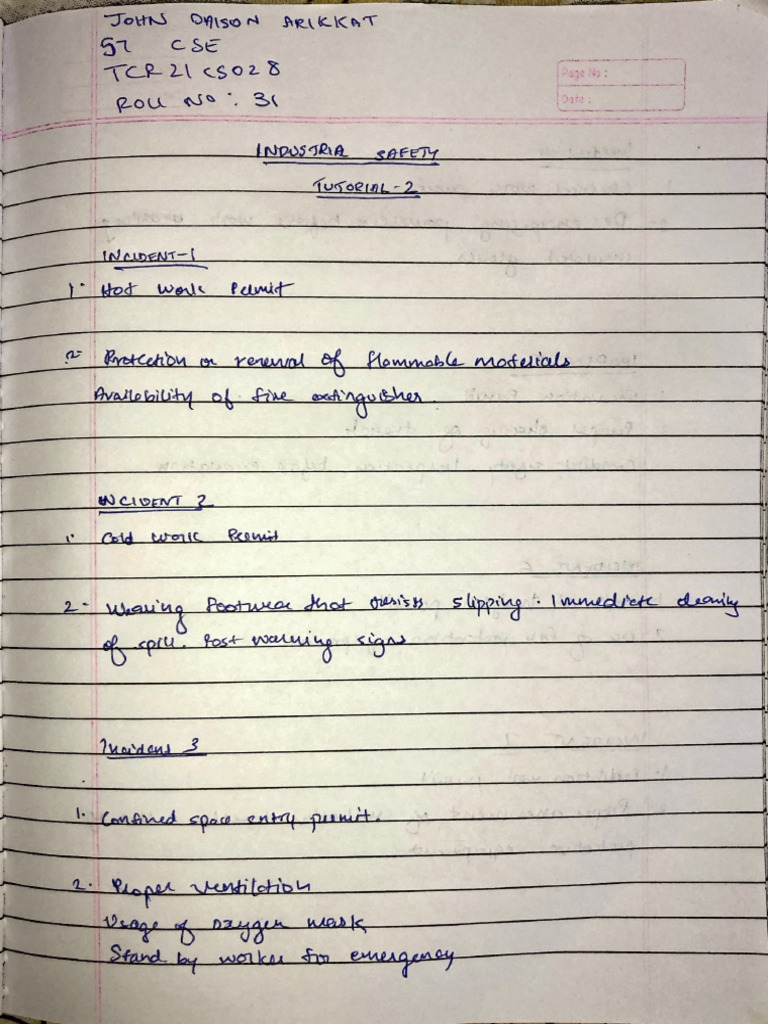 JOHN DAISON ARIKKAT
S7 CSE
TCR21CS028
ROLL NO: 31
Page No :
Date :
INDUSTRIA SAFETY
TUTORIAL-2
INCIDENT-1
1. Hot work Permit
2. Protection or removal of flammable materials
Availability of fire extinguisher.
INCIDENT 2
1. Cold work Permit
2- Wearing footwear that resists slipping. Immediate cleaning
of spill. Post warning signs
Incident 3
1. Confined space entry permit.
2. Proper ventilation
Usage of oxygen mask
Stand by worker for emergency